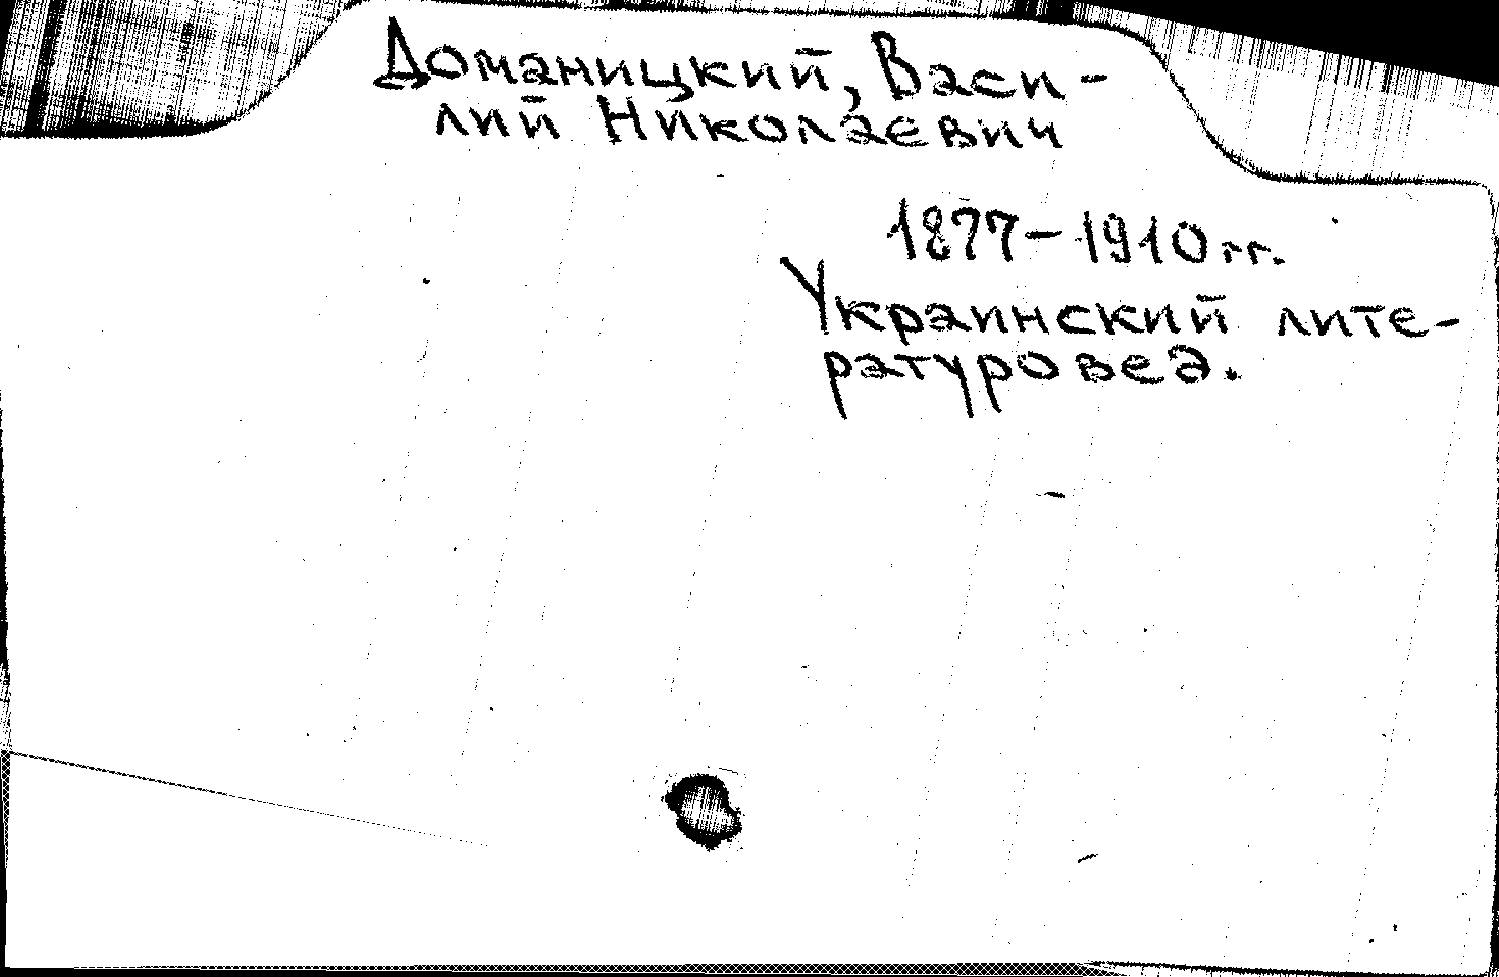 Доманицкий, Васи-
лий Николаевич
1877-1910 гг.
Украинский лите-
ратуровед.